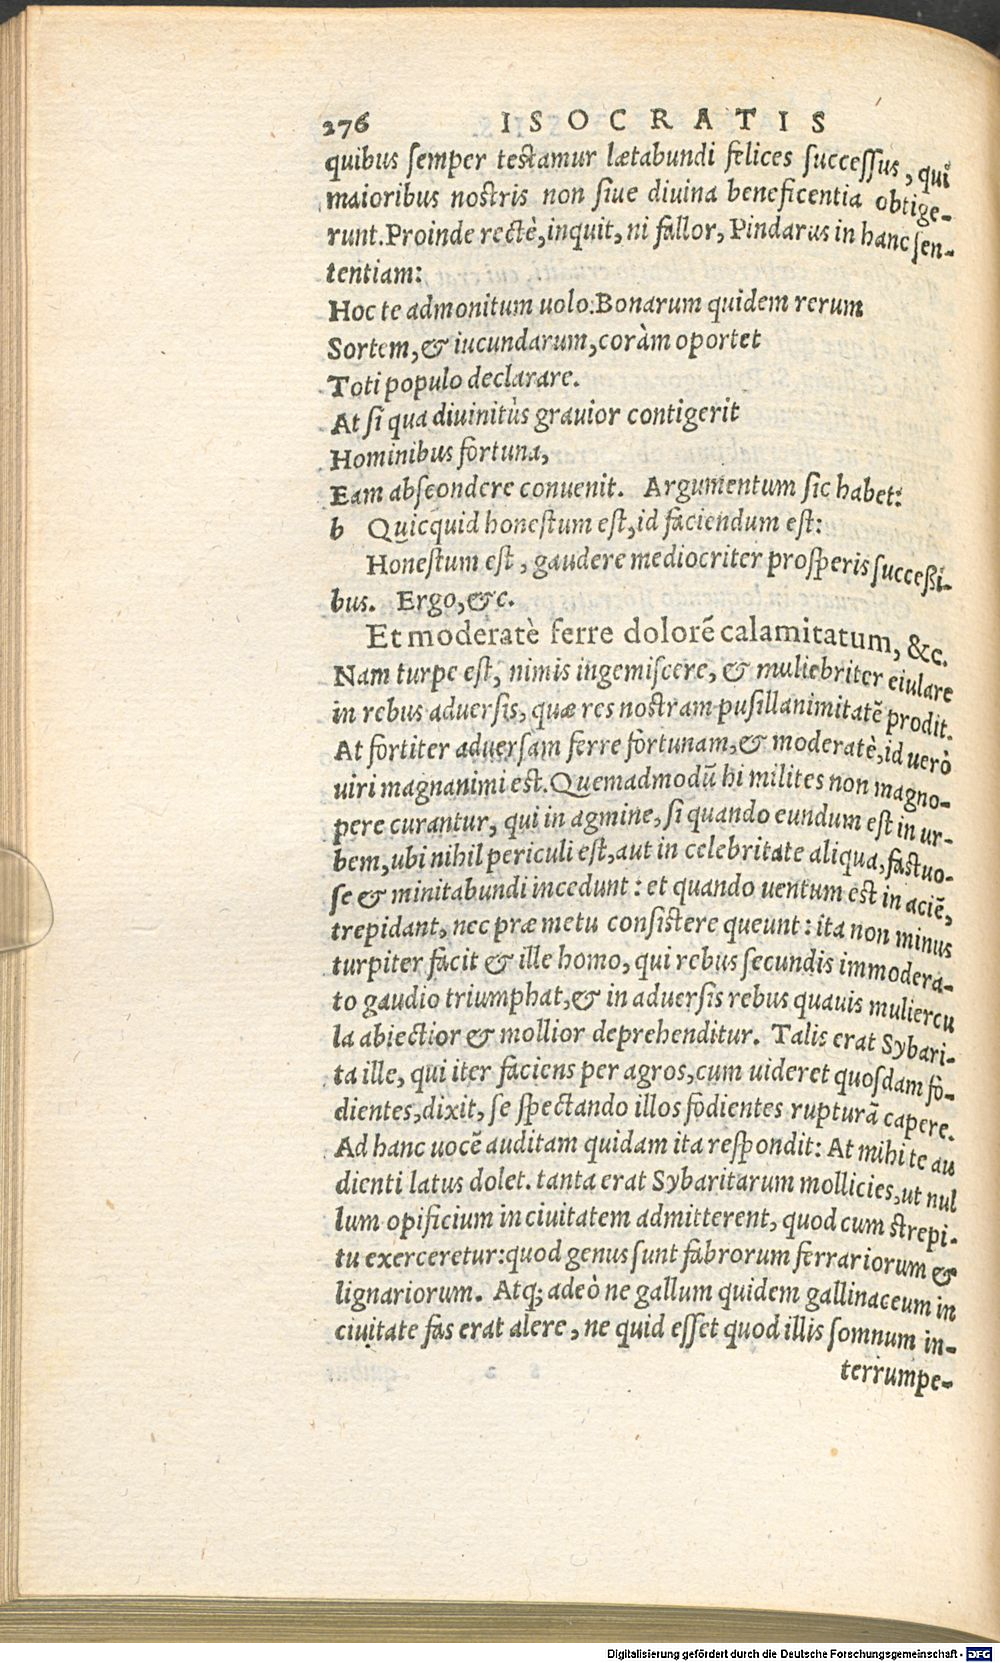 276 ISOCRATIS
quibus semper testamur lætabundi felices successus, qui
maioribus nostris non siue diuina beneficentia obtige-
runt. Proinde rectè, inquit, ni fallor, Pindarus in hanc sen-
tentiam:
Hoc te admonitum uolo: Bonarum quidem rerum
Sortem, & iucundarum, coràm oportet
Toti populo declarare.
At si qua diuinitùs grauior contigerit
Hominibus fortuna,
Eam abscondere conuenit. Argumentum sic habet:
b Quicquid honestum est, id faciendum est:
Honestum est, gaudere mediocriter prosperis successi-
bus. Ergo, &c.
Et moderatè ferre dolorē calamitatum, &c.
Nam turpe est, nimis ingemiscere, & muliebriter eiulare
in rebus aduersis, quæ res nostram pusillanimitatē prodit.
At fortiter aduersam ferre fortunam, & moderatè, id uerò
uiri magnanimi est. Quemadmodū hi milites non magno-
pere curantur, qui in agmine, si quando eundum est in ur-
bem, ubi nihil periculi est, aut in celebritate aliqua, fastuo-
se & minitabundi incedunt: et quando uentum est in aciē,
trepidant, nec præ metu consistere queunt: ita non minus
turpiter facit & ille homo, qui rebus secundis immodera-
to gaudio triumphat, & in aduersis rebus quauis muliercu
la abiectior & mollior deprehenditur. Talis erat Sybari-
ta ille, qui iter faciens per agros, cum uideret quosdam fo-
dientes, dixit, se spectando illos fodientes rupturā capere.
Ad hanc uocē auditam quidam ita respondit: At mihi te au
dienti latus dolet. tanta erat Sybaritarum mollicies, ut nul
lum opificium in ciuitatem admitterent, quod cum strepi-
tu exerceretur: quod genus sunt fabrorum ferrariorum &
lignariorum. Atq; adeò ne gallum quidem gallinaceum in
ciuitate fas erat alere, ne quid esset quod illis somnum in-
terrumpe-
Digitalisierung gefördert durch die Deutsche Forschungsgemeinschaft - DFG